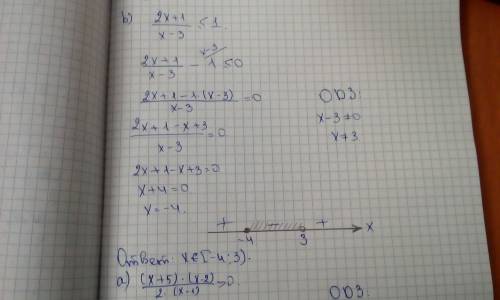 b) (2x+1)/(x-3) ≤ 1.
(2x+1)/(x-3) - 1 ≤ 0 x-3
(2x+1-1·(x-3))/(x-3) = 0
ОДЗ:
x-3≠0
x≠3.
(2x+1-x+3)/(x-3) = 0
2x+1-x+3=0
x+4=0
x=-4.
+ - + x
-4 3
Ответ: x∈[-4;3).
a) ((x+5)·(x-2))/(2·(x-1)) >0.
ОДЗ: